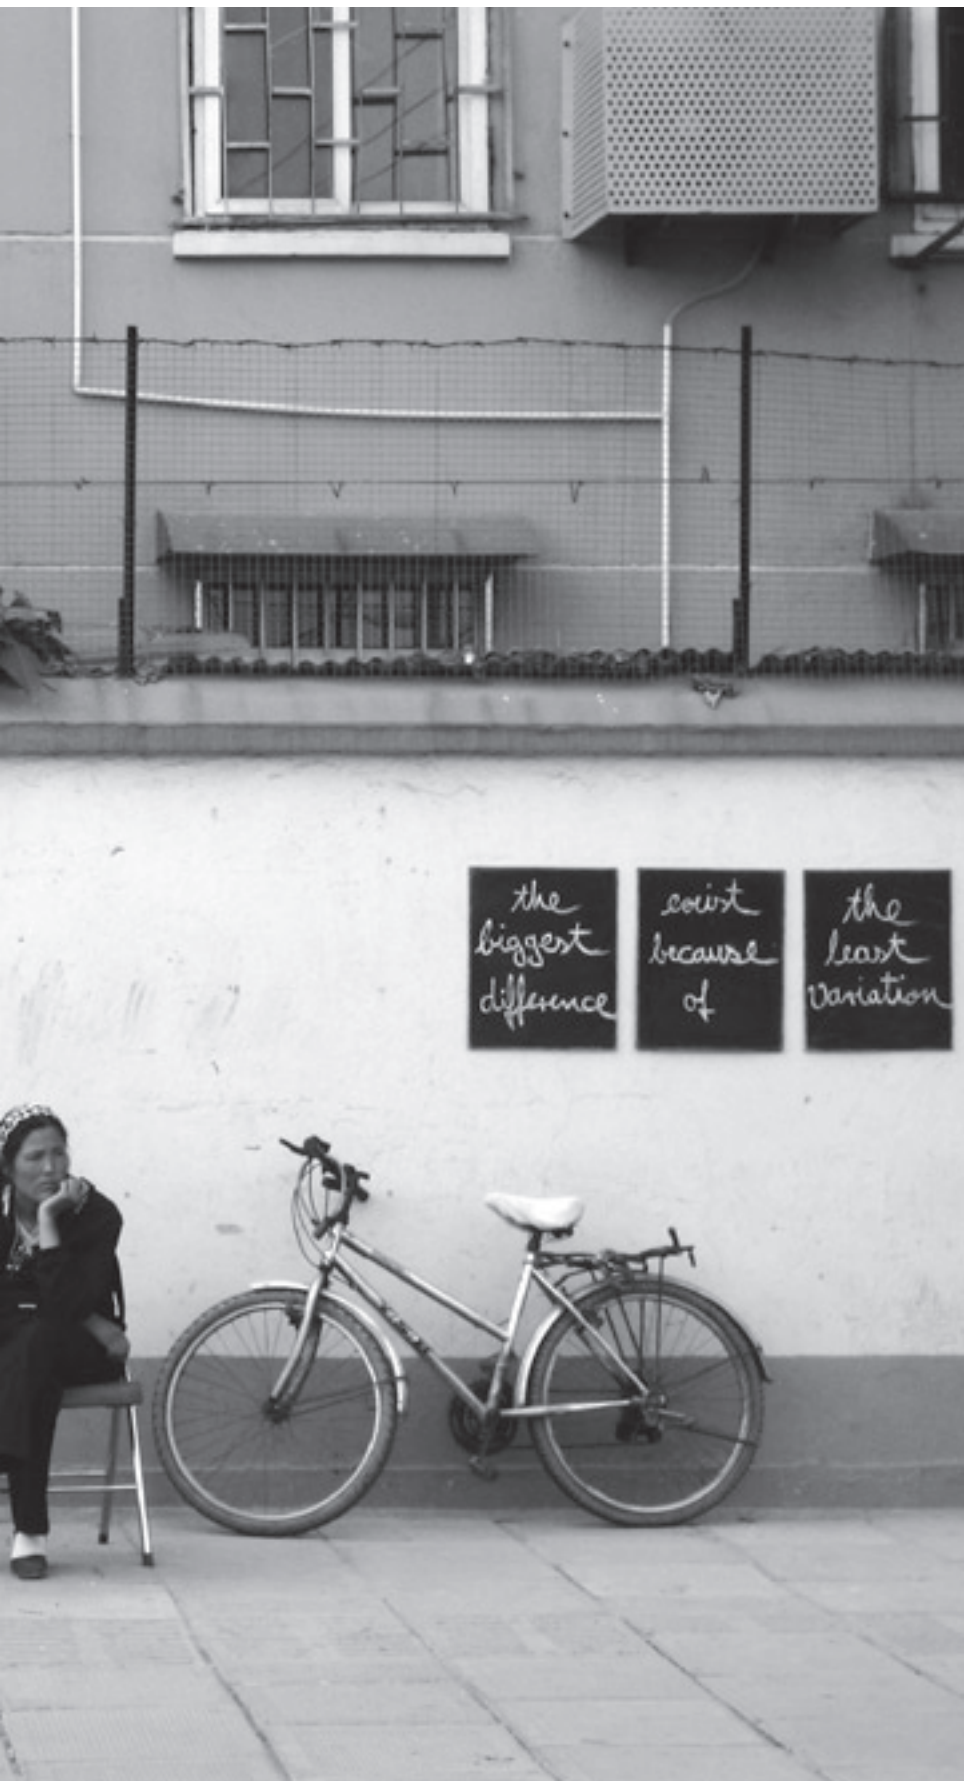 the
biggest
difference
exist
because
of
the
least
variation